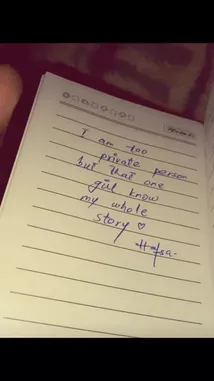 I am too
private person
but that one
girl know
my whole
story ♡
Hafsa-